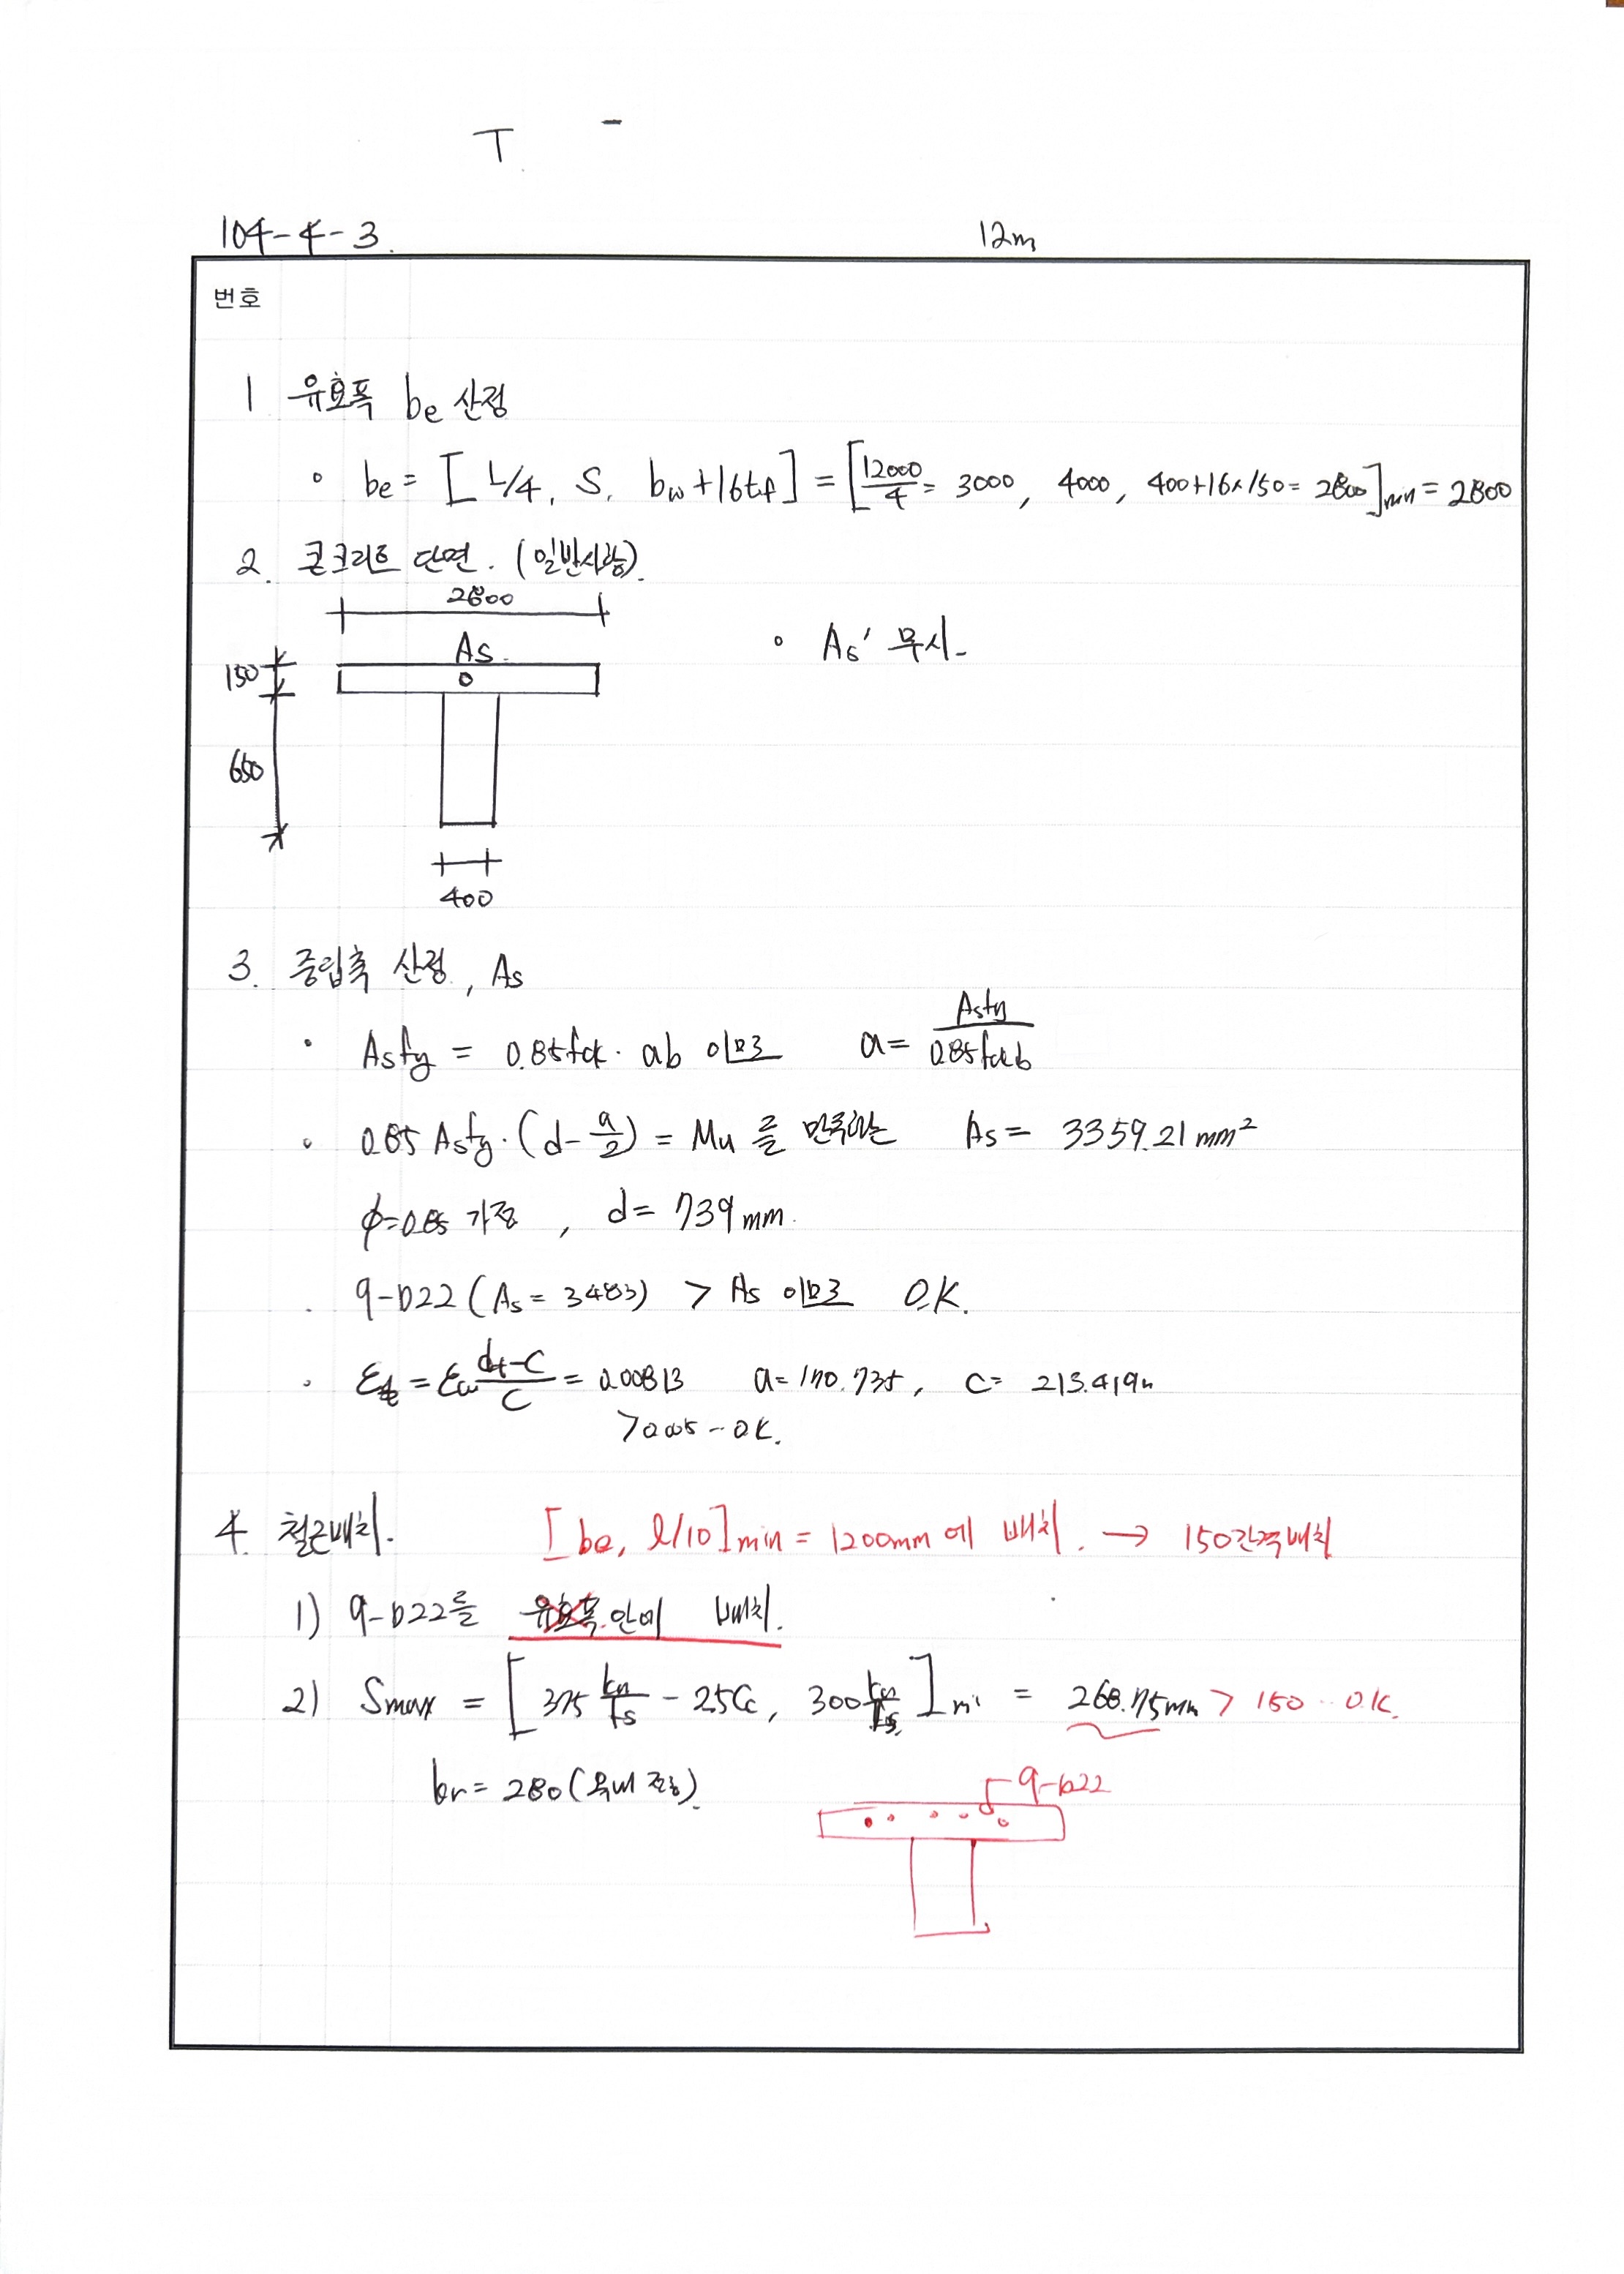 T -
104-4-3.
12m
번호
1 유효폭 be 산정
∘ be = [ L/4, S, bw+16tf ] = [ 12000/4 = 3000, 4000, 400+16×150 = 2800 ]min = 2800
2. 콘크리트 단면. (일반사항).
2800
As
150
650
400
∘ As' 무시.
3. 중립축 산정, As
· Asfy = 0.85fck · ab 이므로 a = Asfy / 0.85fckb
∘ 0.85 Asfy · (d - a/2) = Mu 를 만족하는 As = 3359.21 mm²
ϕ=0.85 가정, d = 739 mm.
· 9-D22 (As = 3483) > As 이므로 O.K.
· εt = εcu dt-c / c = 0.00813 a = 170.735, c = 213.419
> 0.005 - O.K.
4. 철근배치. [ be, l/10 ] min = 1200mm 에 배치. → 150간격배치
1) 9-D22를 유효폭 안에 배치.
2) Smax = [ 375 kcr/fs - 2.5Cc, 300 kcr/fs ] = 268.75mm > 150 ·· O.K.
kcr = 280 (옥내 건조).
9-D22